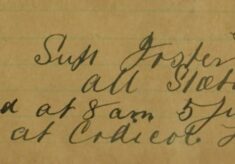 Supt Foster
all Stat
d at 8 am 5 Ju
at Codicote